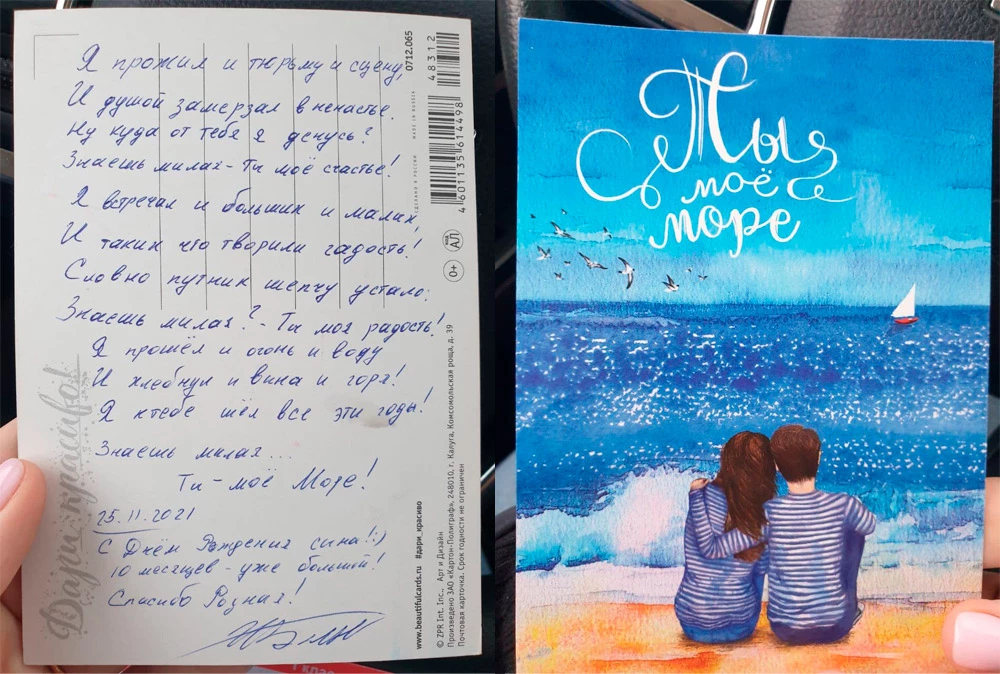 Я прожил и тюрьму и сцену,
И душой замерзал в ненастье.
Ну куда от тебя я денусь?
Знаешь милая - Ты моё счастье!
Я встречал и больших и малых,
И таких что творили гадость!
Словно путник шепчу устало:
Знаешь милая? - Ты моя радость!
Я прошёл и огонь и воду
И хлебнул и вина и горя!
Я ктебе шёл все эти годы!
Знаешь милая...
Ты - моё Море!
25.11.2021
С Днём Рождения сына!:)
10 месяцев - уже большой!
Спасибо Родная!
Дари красиво!
0712.065
48312
4601135614498
СДЕЛАНО В РОССИИ MADE IN RUSSIA
АЛ
0+
www.beautifulcards.ru #дари_красиво
© ZPR Int. Inc., Арт и Дизайн
Произведено ЗАО «Картон-Полиграф», 248010, г. Калуга, Комсомольская роща, д. 39
Почтовая карточка. Срок годности не ограничен
Ты
моё
море